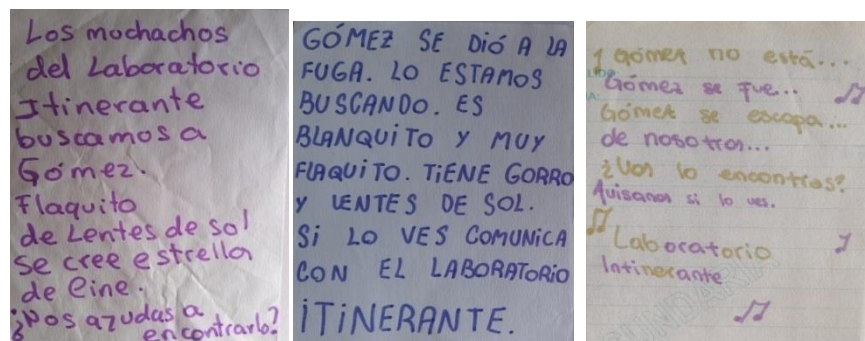 Los muchachos
del Laboratorio
Itinerante
buscamos a
Gómez.
Flaquito
de Lentes de sol
se cree estrella
de Cine.
¿Nos ayudas a
encontrarlo?
GÓMEZ SE DIÓ A LA
FUGA. LO ESTAMOS
BUSCANDO. ES
BLANQUITO Y MUY
FLAQUITO. TIENE GORRO
Y LENTES DE SOL.
SI LO VES COMUNICA
CON EL LABORATORIO
ITINERANTE.
Gómez no está...
Gómez se fue...
Gómez se escapa...
de nosotros...
¿Vos lo encontras?
Avisanos si lo ves.
Laboratorio
Intinerante